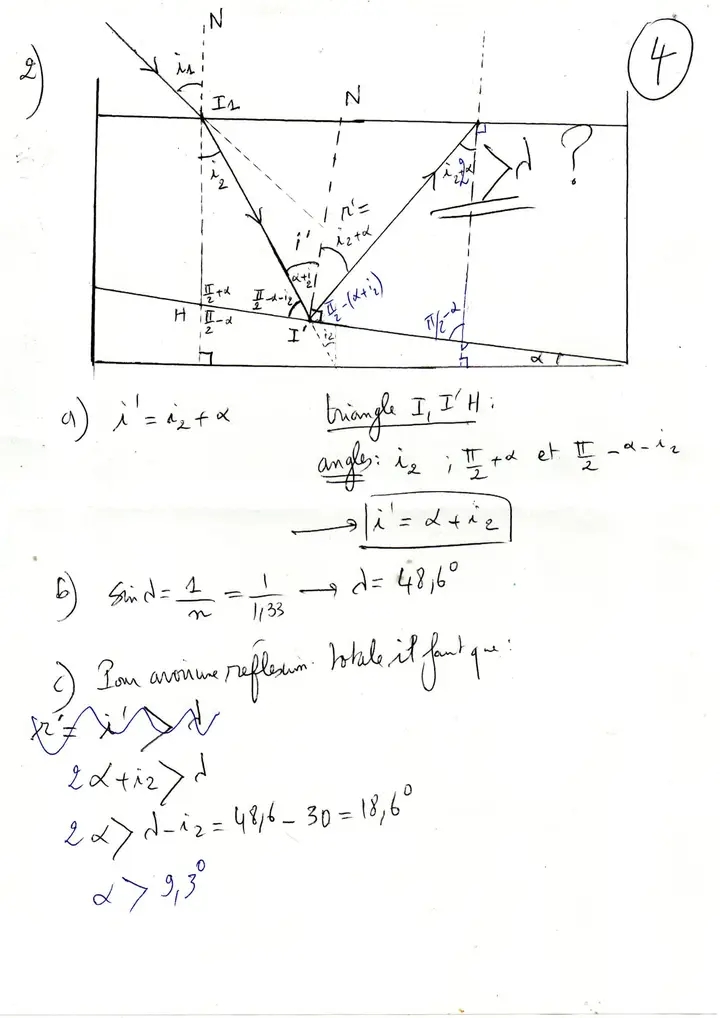 2)
4
N
i1
I1
N
i2
i2+2α
> λ ?
r'=
i2+α
i'
α+i2
π/2+α
π/2-α-i2
π/2-(α+i2)
π/2-α
H
π/2-α
I'
i2
α
a) i' = i2 + α triangle I, I'H :
angles: i2 ; π/2+α et π/2-α-i2
→ i' = α + i2
b) Sin λ = 1/n = 1/1,33 → λ = 48,6°
c) Pour avoir une reflexion totale il faut que :
r' = i' > λ
2α+i2 > λ
2α > λ-i2 = 48,6-30 = 18,6°
α > 9,3°